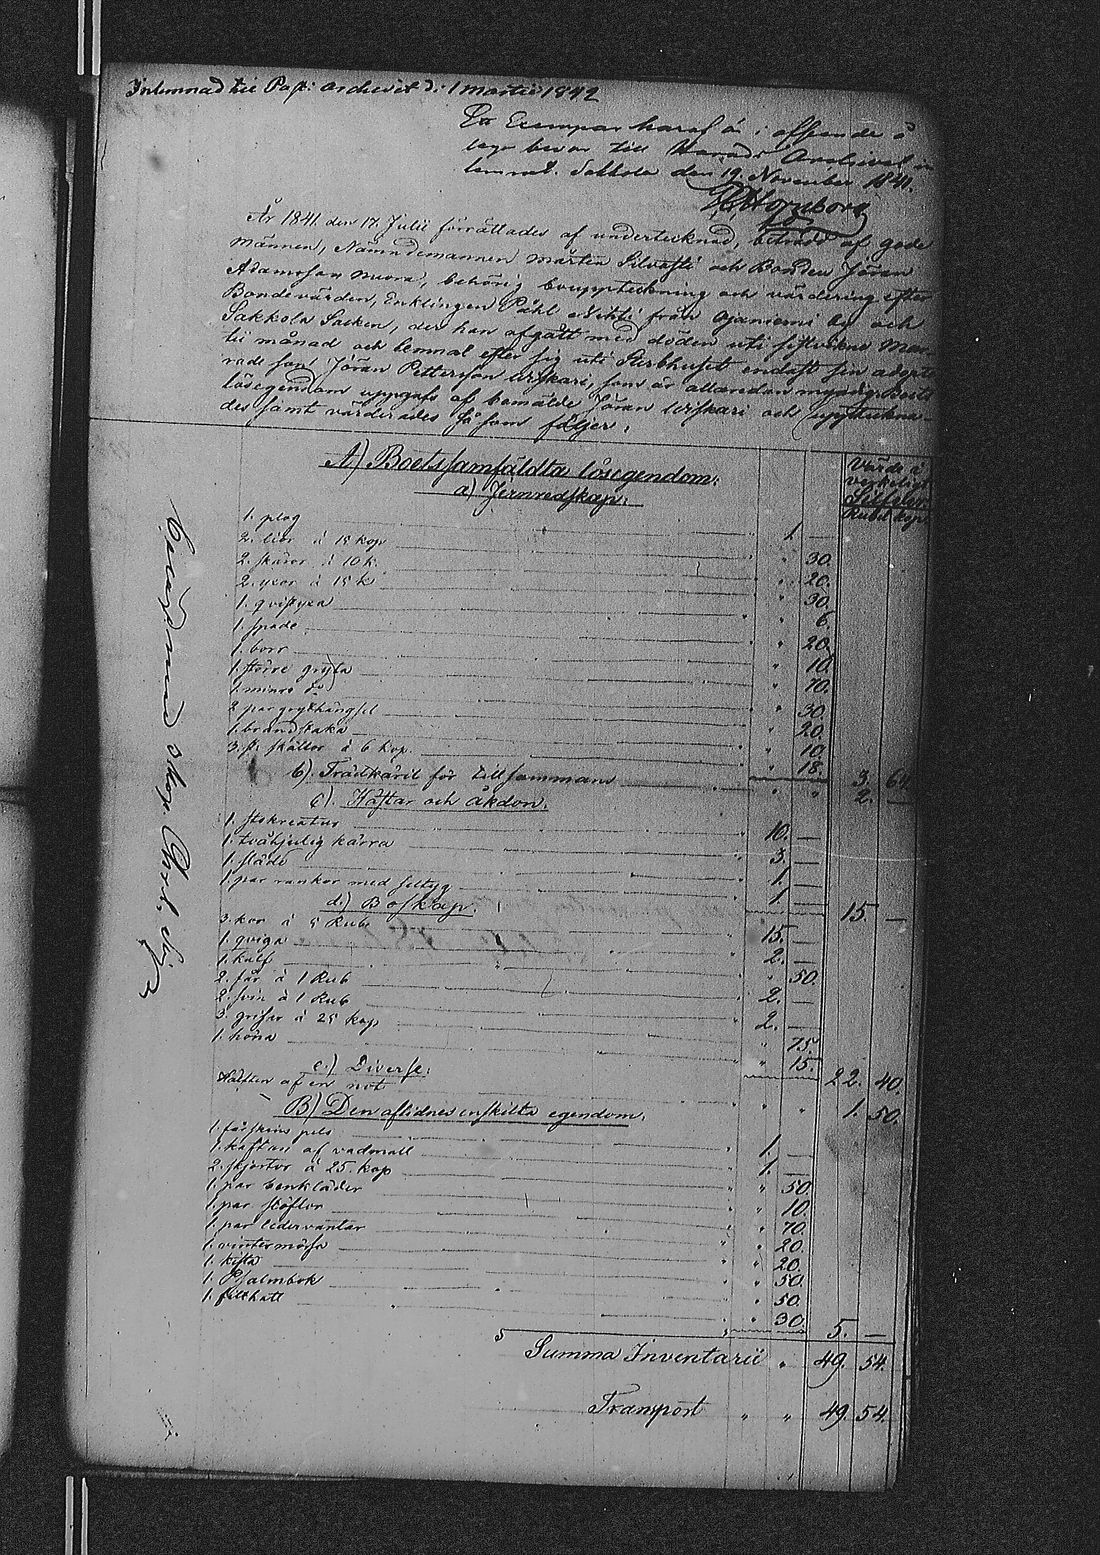 Inlemnad till Past: archivet d: 1 Martii 1842
Ett Exemplar häraf är i
lagr till Härads Archivet in
lemnat. Sakkola den 19 November 1841.
Hornborg
År 1841 den 17 Julii förrättades af undertecknad, biträdd af gode
männen, Nämndemannen Mårten Silvasti och Bonden Jöran
Adamsson Muora, behörig bouppteckning och värdering efter
Bondevärden, Enklingen Påhl från Ojaniemi by och
Sakkola Socken, der han afgått med döden uti sistvikne Mar-
tii månad och lemnat efter sig uti Sterbhuset endast sin adopte
rade son Jöran Pettersson Urskari, som är allaredan myndig. Boets
lösegendom uppgafs af bemälde Jöran Urskari och upptecknа-
des samt värderades så som följer:
Värde i
verkeligt
Silfver
Rubel kop.
A) Boets samfäldta lösegendom:
a) Jernredskap:
1. plog 1. —
2. liar à 15 kop " 30.
2. skäror à 10 k. " 20.
2. yxor à 15 k " 30.
1. qvistyxa " 6.
1. spade " 20.
1. borr " 10.
1. större gryta " 70.
1. minre do " 30.
2 par grythängsel " 20.
1. brandstaka " 10.
3. st. skällor à 6 kop. " 18. 3. 64.
b). Trädkäril för tillsammans " " 2. —
c). Hästar och åkdon:
1. stokreatur 10. —
1. tvåhjulig kärra 3. —
1. släde 1. —
1 par rankor med seltyg 1 — 15. —
d.) Boskap.
3. kor à 5 Rub 15. —
1. qviga 2. —
1. kalf " 50.
2. får à 1 Rub 2. —
2. svin à 1 Rub 2. —
3. grisar à 25 kop " 75
1. höna " 15. 22. 40.
e.) Diverse:
Hälften af en not " " 1. 50.
B) Den aflidnes enskilta egendom:
1. fårskins pels 1. —
1. kaftan af vadmall 1 —
2. skjortor à 25. kop " 50.
1. par benkläder " 10.
1. par stöflor " 70.
1. par lädervantar " 20.
1. vintermössa " 20.
1. kista " 50.
1. Psalmbok " 50.
1. filthatt " 30. 5. —
Summa Inventarii " 49. 54.
Transport " " 49. 54